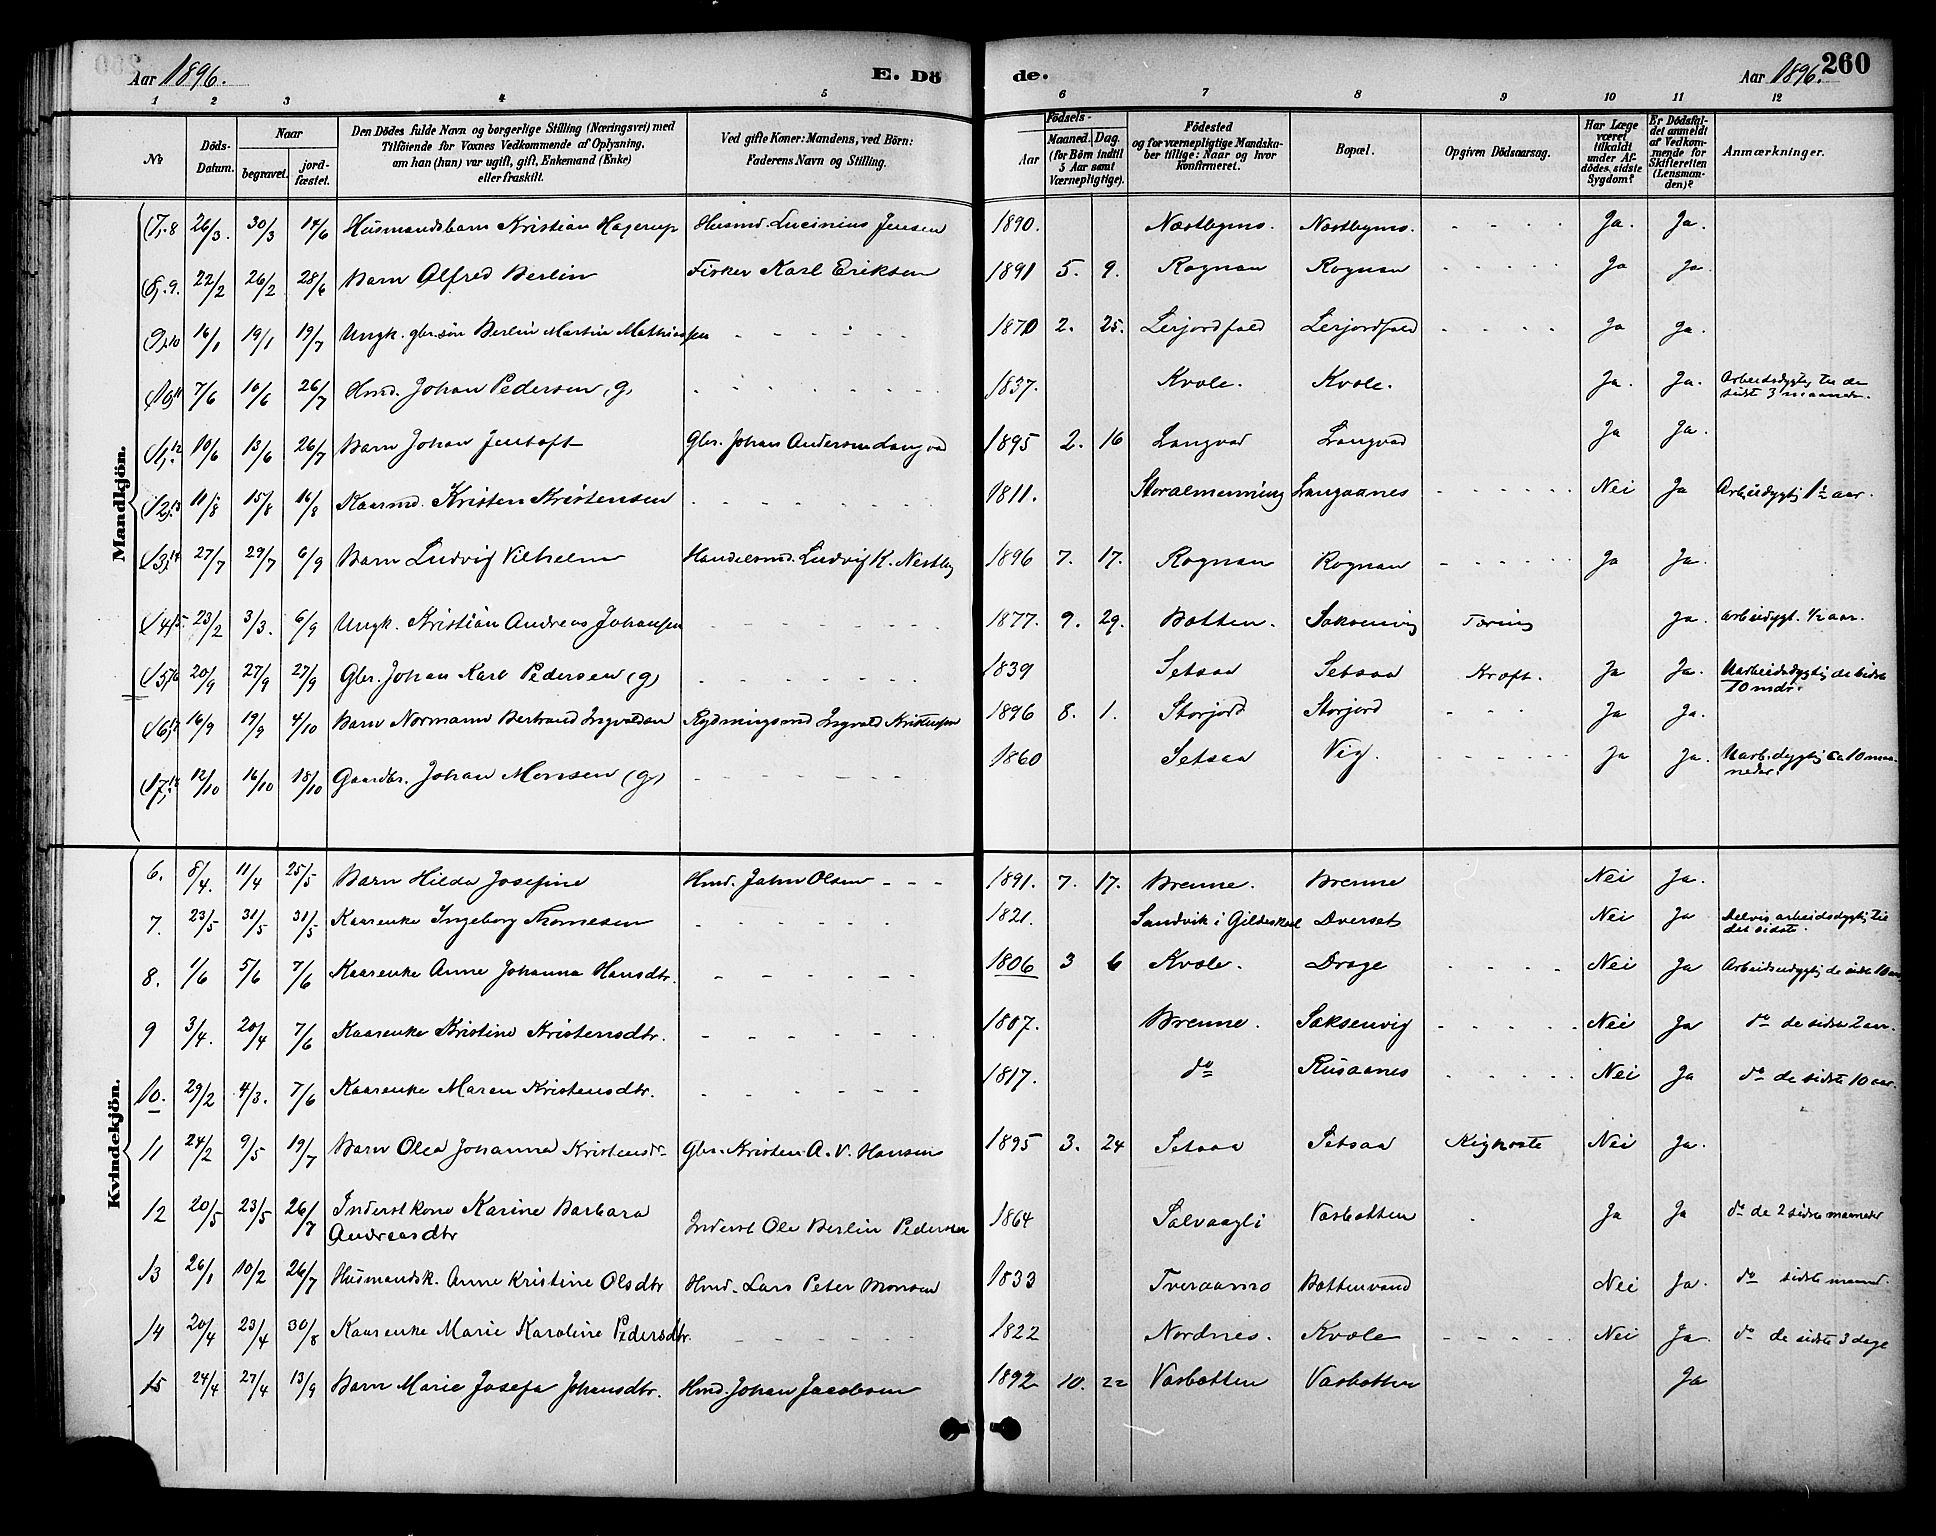 Aar 1896. E. Dö de. Aar 1896. 260
1 2 3 4 5 6 7 8 9 10 11 12
No
Döds-Datum.
Naar
begravet.
jordfæstet.
Den Dödes fulde Navn og borgerlige Stilling (Næringsvei) med
Tilföiende for Voxnes Vedkommende af Oplysning,
om han (hun) var ugift, gift, Enkemand (Enke)
eller fraskilt.
Ved gifte Koner: Mandens, ved Börn:
Faderens Navn og Stilling.
Födsels-
Aar
Maaned. Dag.
(for Börn indtil
5 Aar samt
Værnepligtige).
Födested
og for værnepligtige Mandskaber tillige: Naar og hvor
konfirmeret.
Bopæl.
Opgiven Dödsaarsag.
Har Læge
været
tilkaldt
under Afdödes sidste
Sygdom?
Er Dödsfaldet anmeldt
af Vedkommende for
Skifteretten
(Lensmanden)?
Anmærkninger.
Mandkjön.
8 26/3. 30/3 14/6 Husmandsbarn Kristian Hagerup Husmd. Lucinius Jensen 1890. Næstbymo. Næstbymo. - - - - Ja. Ja.
9. 22/2 26/2 28/6 Barn Alfred Berlin Fisker Karl Eriksen 1891 5. 9. Rognan Rognan - - - - - Ja Ja.
10 16/1 19/1 19/7 Ungk. gbr. søn Berlin Martin Mathiassen - - - - - 1870 2. 25. Lerjordfald Lerjordfald - - - - Ja Ja.
11 7/6 10/6 26/7 Hmd. Johan Pedersen (g) - - - - - - 1837. Kvæle. Kvæle. Ja. Ja. Arbeidsdygtig til de sidste 3 maaneder.
12 10/6 13/6 26/7 Barn Johan Jentoft Gbr. Johan Andersen Langvad 1895 2. 16 Langvad Langvad Ja Ja.
13 11/8 15/8 16/8 Kaarmd. Kristen Kristensen - - - - - - 1811. Storalmenning Langaanes - - - - - - Nei Ja
14 27/7 29/7 6/9 Barn Ludvig Vilhelm Handelsmd. Ludvig K. Nestby 1896 7. 17. Rognan Rognan - - - - - Ja Ja.
15. 23/2 3/3. 6/9 Ungk. Kristian Andreas Johansen - - - - - - 1877. 9. 29. Botten. Saksenvig Tæring Ja. Arbeidygt. 1/2 aar.
16 20/9 27/9 27/9 Gbr. Johan Karl Pedersen (g) - - - - - - 1839 Setsaa Setsaa Kræft. Ja Ja. Uarbeidsdygtig de sidste 10 mdr.
16/9 19/9 4/10 Barn Normann Bertrand Ingvaldsen Rydningsmd Ingvald Kristensen 1896 8. 1. Storjord Storjord - - - Ja Ja.
12/10 16/10 18/10 Gaardbr. Johan Monsen (g) - - - - - - 1860 Setsaa Vig. - - - - - Ja Ja. Uarb.dygtig ca 10 maaneder.
Kvindekjön.
6. 8/4. 11/4 25/5 Barn Hilda Josefine Hmd. John Olsen - - - 1891. 7. 17. Brenne. Brenne Nei Ja.
7. 23/5 31/5 31/5 Kaarenke Ingeborg Thomesen - - - - - - 1821. Sandvik i Gildeskaal Dverset Nei Ja Delvis arbeidsdygtig til det sidste.
8. 1/6 5/6 7/6 Kaarenke Anne Johanna Hansdtr. - - - - - - 1806 3 6 Kvæle. Drage - - - - Nei Ja Arbeidsudygtig de sidste 10 aar
9 3/4. 20/4 7/6 Kaarenke Kristine Kristensdtr. - - - - - - 1807. Brenne. Saksenvig - - - - - Nei Ja do de sidste 2 aar.
10. 29/2 4/3. 7/6 Kaarenke Maren Kristensdtr. - - - - - - 1817. do Rusaanes - - - - - Nei Ja do de sidste 10 aar.
11 24/2 9/5 19/7 Barn Olea Johanna Kristensdr. Gbr. Kristen A. V. Hansen 1895 3. 24 Setsaa Setsaa Kighoste Nei Ja.
12 20/5 23/5 26/7 Inderst kone Karine Barbara Andreasdtr Inderst Ole Berlin Pedersen 1864 Solvaagli Vasbotten - Ja Ja do de 2 sidste maaneder
13 26/1 10/2 26/7 Husmandsk. Anne Kristine Olsdtr Hmd. Lars Peter Monsen 1833 Tveraamo Bottenvand Nei Ja. do sidste maaned.
14 20/4 23/4 30/8 Kaarenke Marie Karoline Pedersdtr. - - - - - 1822 Nordnes. Kvæle - - - - Nei Ja. do de sidste 3 dage
15 24/4 27/4 13/9 Barn Marie Josefa Johansdtr. Hmd. Johan Jacobsen 1892 10. 22 Vasbotten Vasbotten Ja